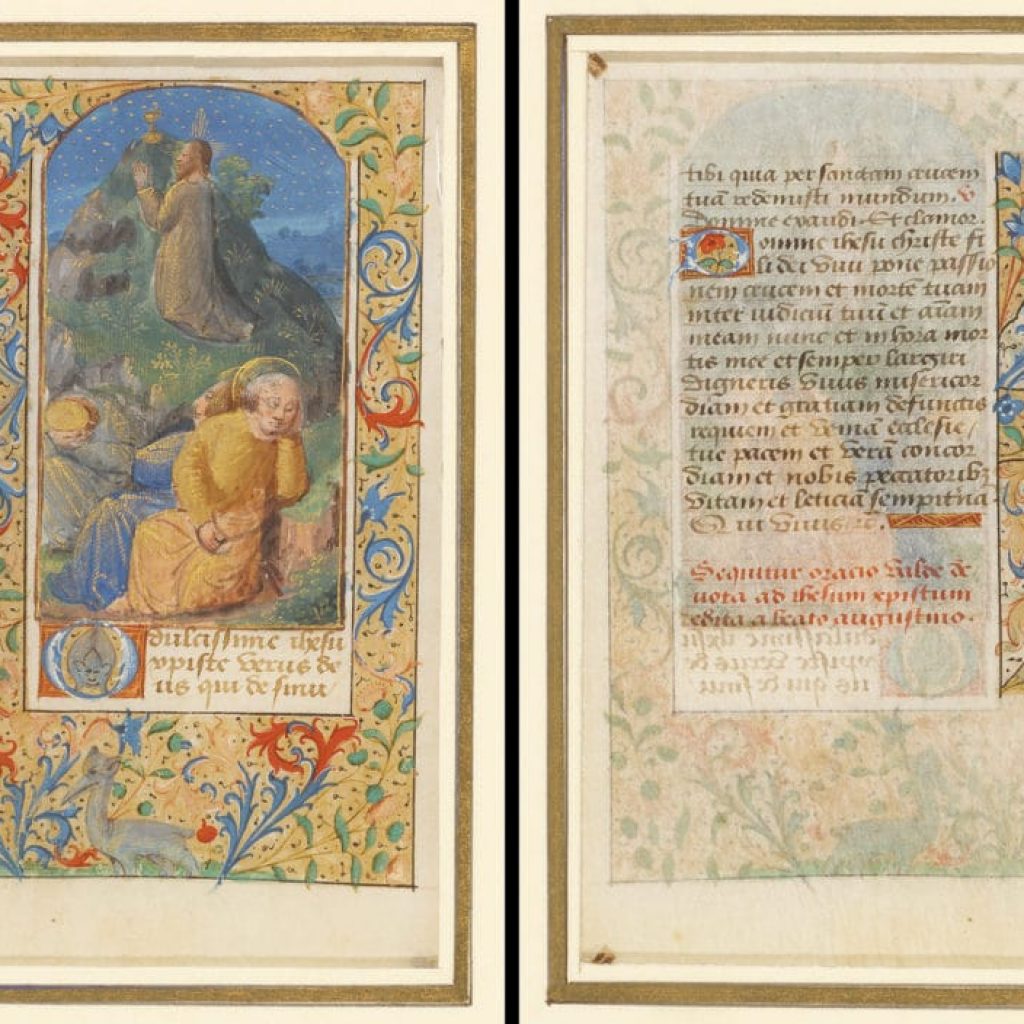 dulcissime ihesu
xpiste verus de
us qui de sinu
tibi quia per sanctam crucem
tuã redemisti mundum. v
Domine exaudi. Et clamor.
Domine ihesu christe fi
li dei vivi pone passio
nem crucem et mortẽ tuam
inter iudiciũ tuũ et aĩam
meam nunc et in hora mor
tis mee et semper largiri
digneris vivis misericor
diam et gratiam defunctis
requiem et
tue pacem et verã concor
diam et nobis peccatoribꝫ
vitam et leticiã sempit'na
Qui vivis
Sequitur oracio valde de
uota ad ihesum xpistum
edita a beato augustino.